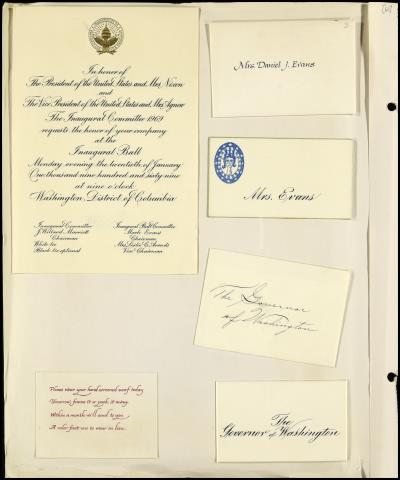 In honor of
The President of the United States and Mrs. Nixon
and
The Vice President of the United States and Mrs. Agnew
The Inaugural Committee 1969
requests the honor of your company
at the
Inaugural Ball
Monday evening the twentieth of January
One thousand nine hundred and sixty nine
at nine o'clock
Washington, District of Columbia
Inaugural Committee
J. Willard Marriott
Chairman
White tie
Black tie optional
Inaugural Ball Committee
Mark Evans
Chairman
Mrs. Leslie C. Arends
Vice Chairman
Mrs. Daniel J. Evans
Mrs. Evans
The Governor
of Washington
Please wear your hand screened scarf today
Tomorrow, frame it or pack it away.
Within a month we'll send to you
A color fast one to wear in lieu.
The
Governor of Washington